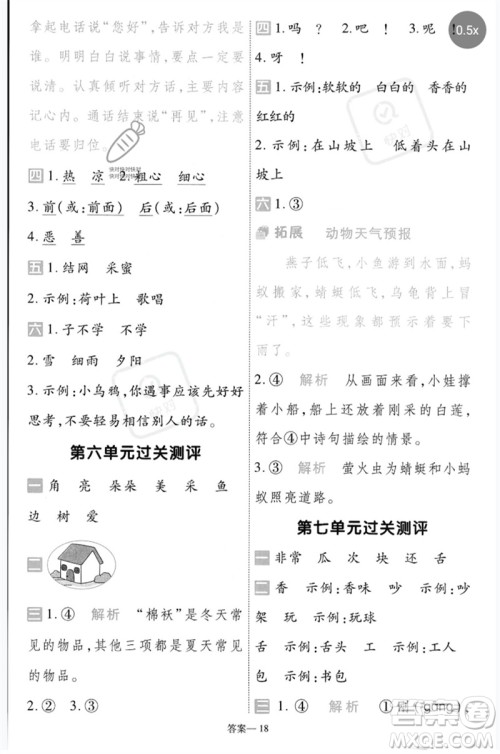 0.5x
拿起电话说“您好”，告诉对方我是
谁。明明白白说事情，要简明清
楚。认真倾听对方话，主要内容
记心内。通话结束说“再见”，注意
电话要归位。
四 1.热 凉 2.粗心 细心
3.前(或:前面) 后(或:后面)
4.恶 善
五 1.结网 采蜜
2.示例:荷叶上 歌唱
六 1.子不学
2.雪 细雨 夕阳
3.示例:小乌鸦，你遇事应该先好好
思考，不要轻易相信别人的话。
第六单元过关测评
一 角 亮 朵朵 美 采 鱼
边 树 爱
二
三 1.④ 解析 “棉袄”是冬天常
见的物品，其他三项都是夏天常见
的物品。
2.② 3.③
四 1.吗 ？
4.呀！
五 1.示例:软软的 白白的 香香的
红红的
2.示例:在山坡上 低着头在山
坡上
六 1.③
拓展 动物天气预报
燕子低飞，小鱼游到水面，蚂
蚁搬家，蜻蜓低飞，乌龟身上冒
“汗”，这些现象都预示着要
下雨了。
2.④ 解析 根据课文，小娃撑着
小船，船上放着偷采来的白莲，
符合④中诗句描写的情景。
3.③ 解析 萤火虫为蜻蜓和小蚂
蚁照亮道路。
第七单元过关测评
一 非常 瓜 次 块 还 舌
二 香 示例:香味 吵 示例:吵
架 玩 示例:玩球
舌 示例:舌头 工 示例:工人
包 示例:书包
三 1.④ 解析 ①
答案—18